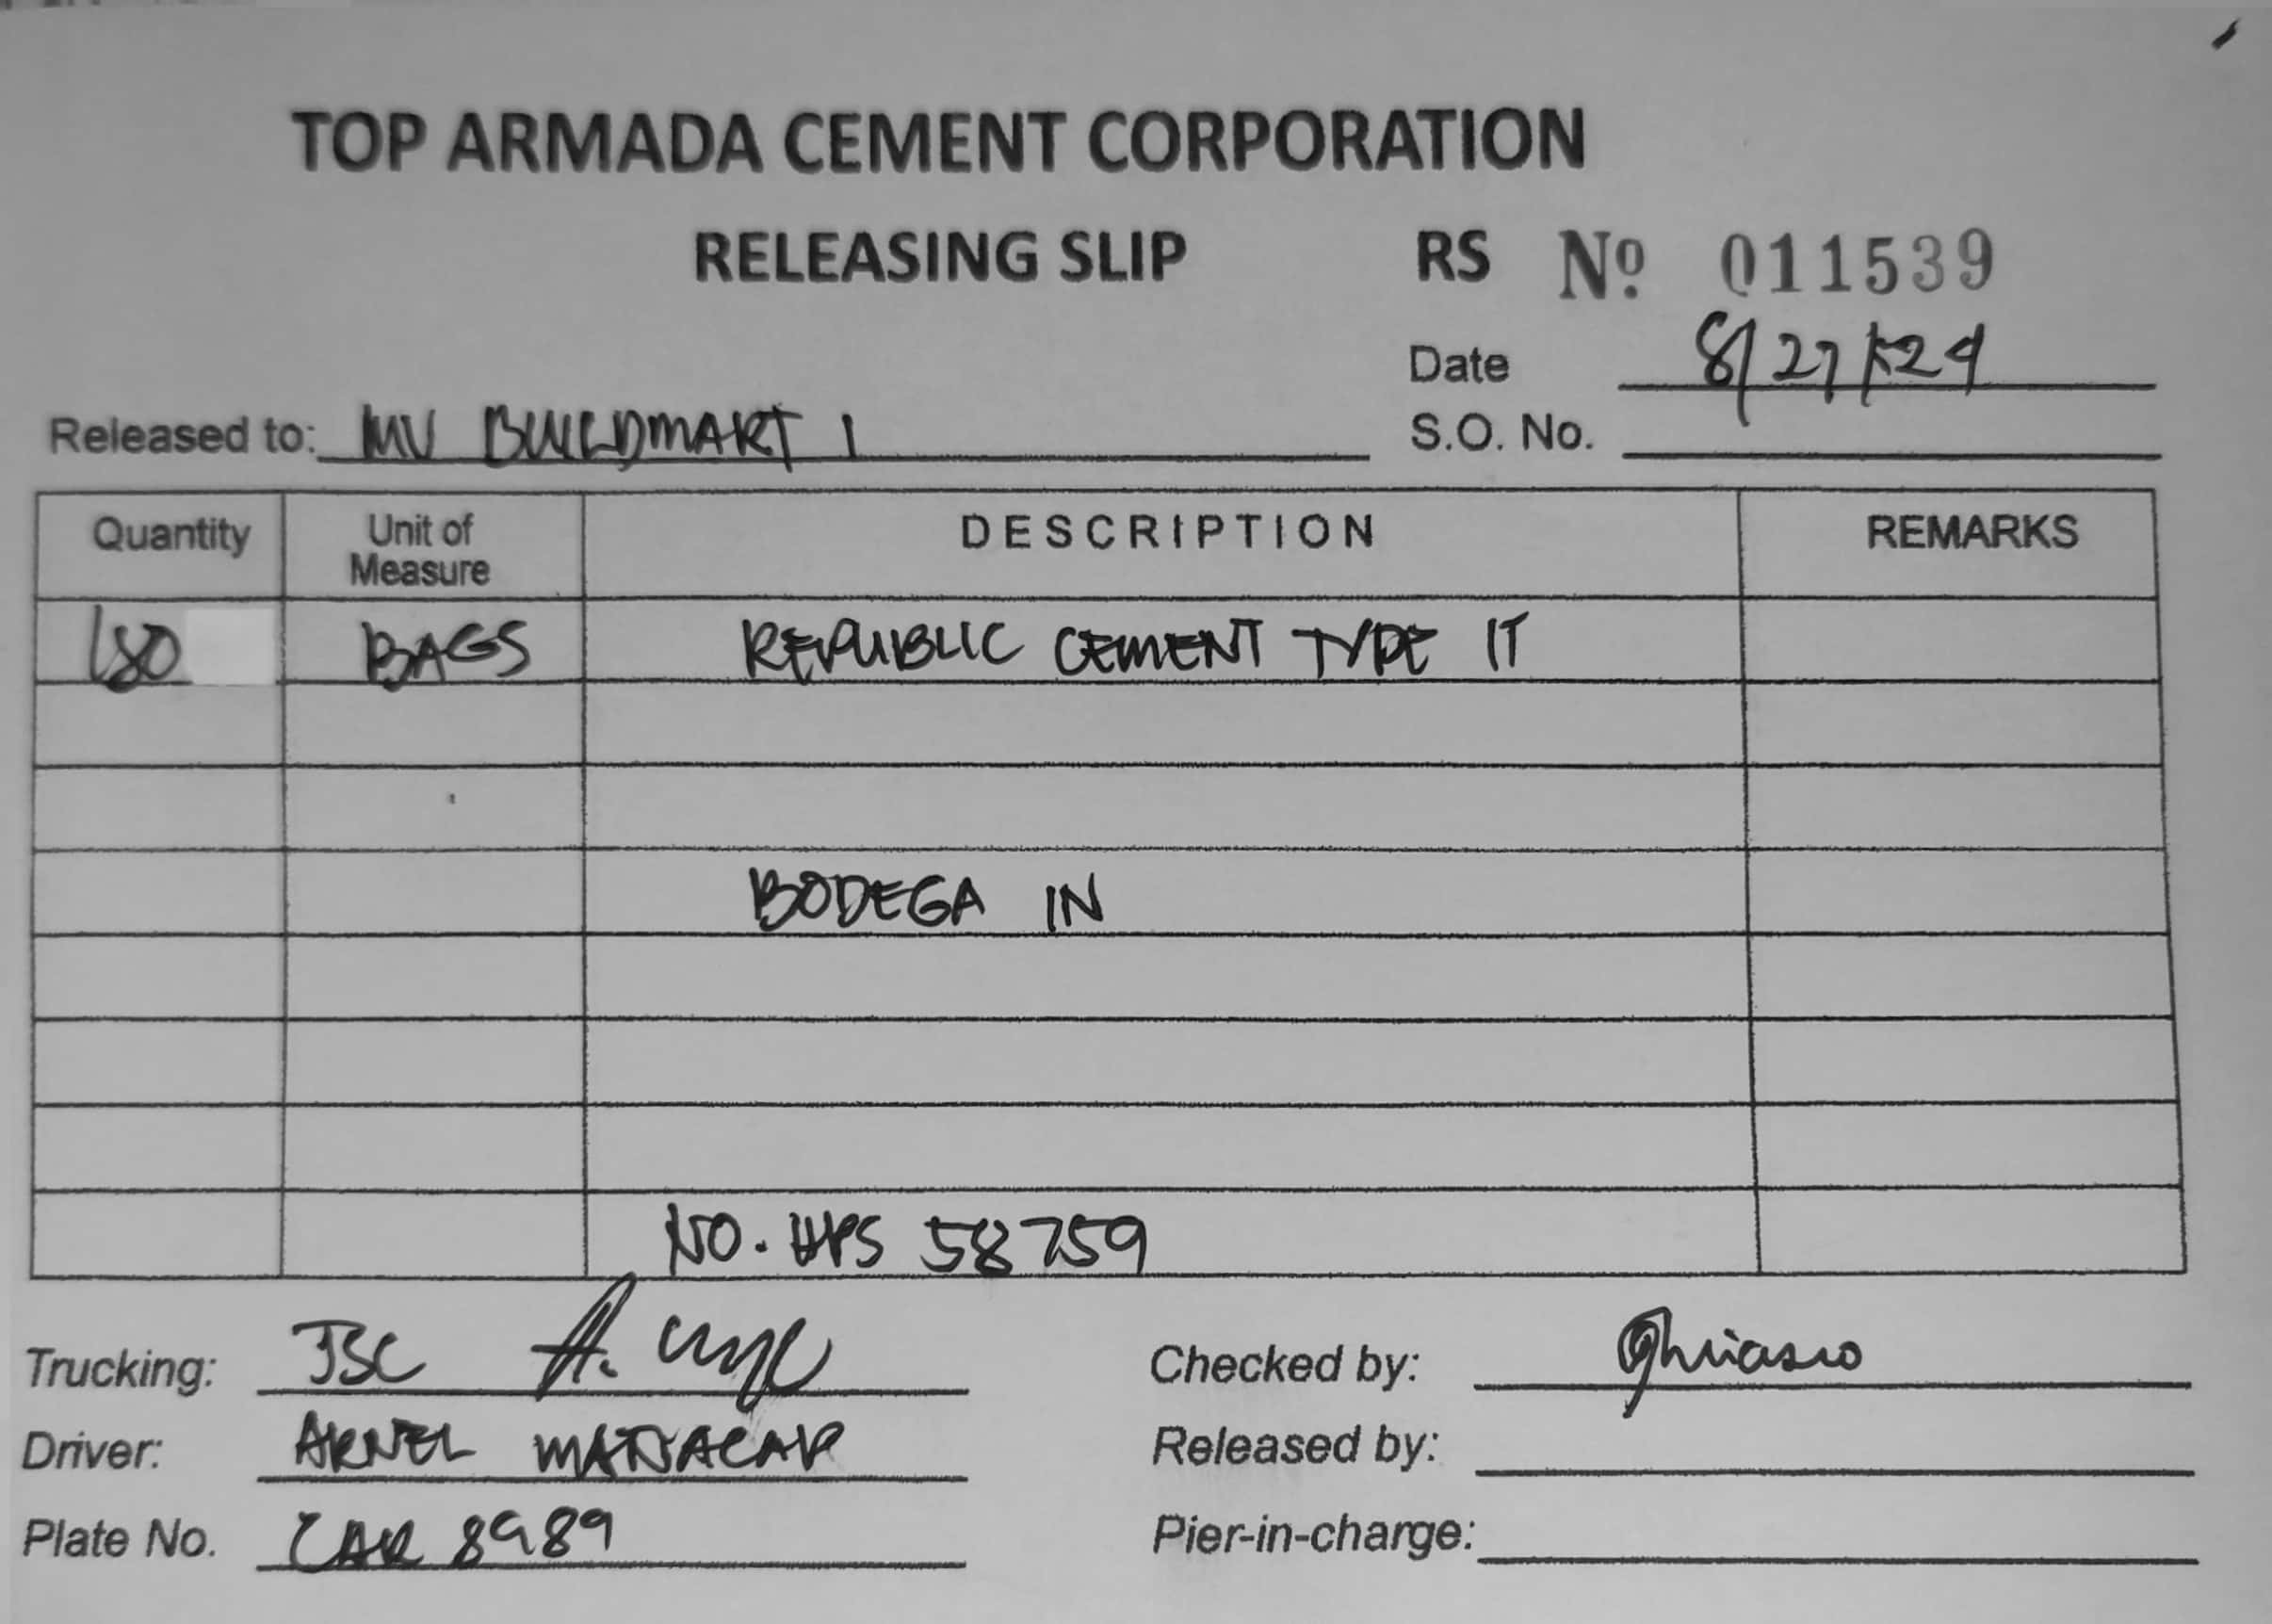 TOP ARMADA CEMENT CORPORATION
RELEASING SLIP RS Nº 011539
Date 8/27/24
Released to: MV BUILDMART 1 S.O. No.
Quantity Unit of Measure DESCRIPTION REMARKS
180 BAGS REPUBLIC CEMENT TYPE 1T
BODEGA IN
NO. 58759
Trucking: JSC Checked by:
Driver: ARNEL MANACAP Released by:
Plate No. CAR 8989 Pier-in-charge: